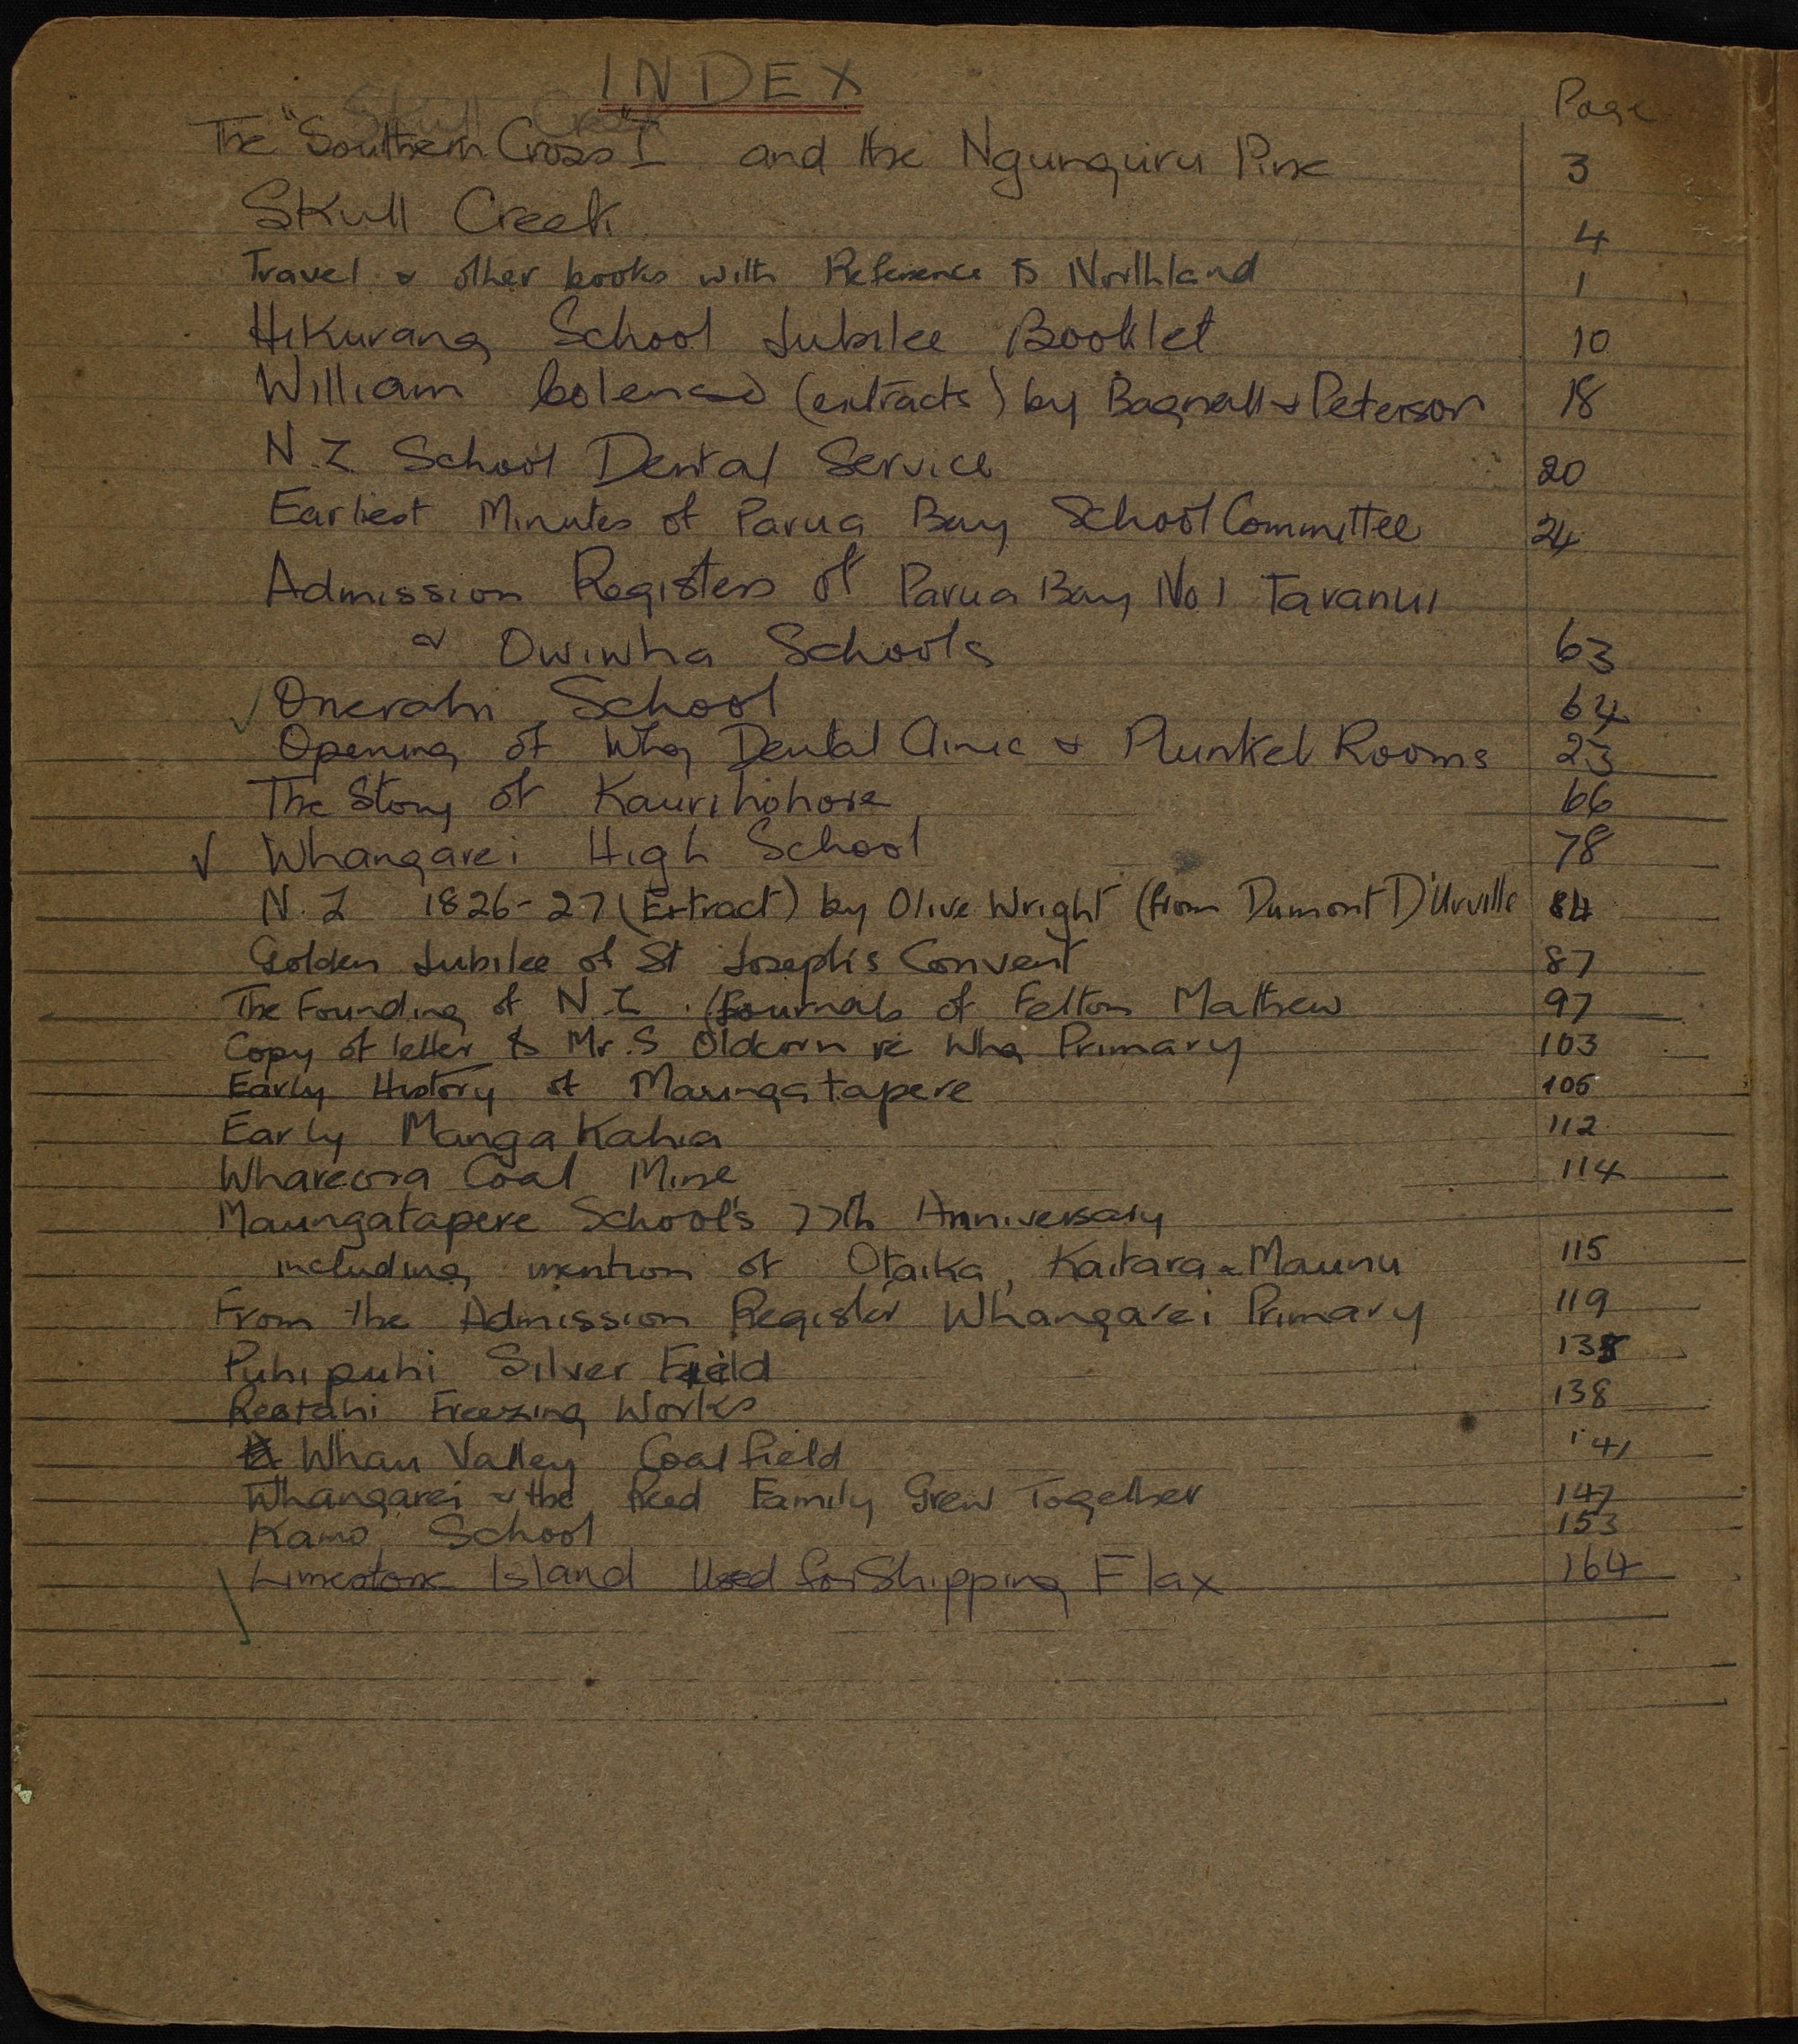 INDEX
Page
Skull Creek
The "Southern Cross" I and the Ngunguru Pine 3
Skull Creek 4
Travel & other books with Reference to Northland 1
Hikurangi School Jubilee Booklet 10
William Colenso (extracts) by Bagnall & Peterson 18
N.Z School Dental Service 20
Earliest Minutes of Parua Bay School Committee 24
Admission Registers of Parua Bay No 1 Taranui
& Owiwha Schools 63
✓ Onerahi School 64
Opening of Whg Dental Clinic & Plunket Rooms 23
The Story of Kaurihohore 66
✓ Whangarei High School 78
N.Z 1826-27 (Extract) by Olive Wright (from Dumont D'Urville 84
Golden Jubilee of St Joseph's Convent 87
The Founding of N.Z. (Journals of Felton Mathew 97
Copy of letter to Mr. S Oldcorn re Whg Primary 103
Early History of Maungatapere 105
Early Mangakahia 112
Whareora Coal Mine 114
Maungatapere School's 77th Anniversary
including mention of Otaika, Kaitara & Maunu 115
From the Admission Register Whangarei Primary 119
Puhipuhi Silver Field
Reotahi Freezing Works 138
Whau Valley Coalfield 141
Whangarei & the Reed Family Grew Together 147
Kamo School 153
Limestone Island Used for Shipping Flax 164